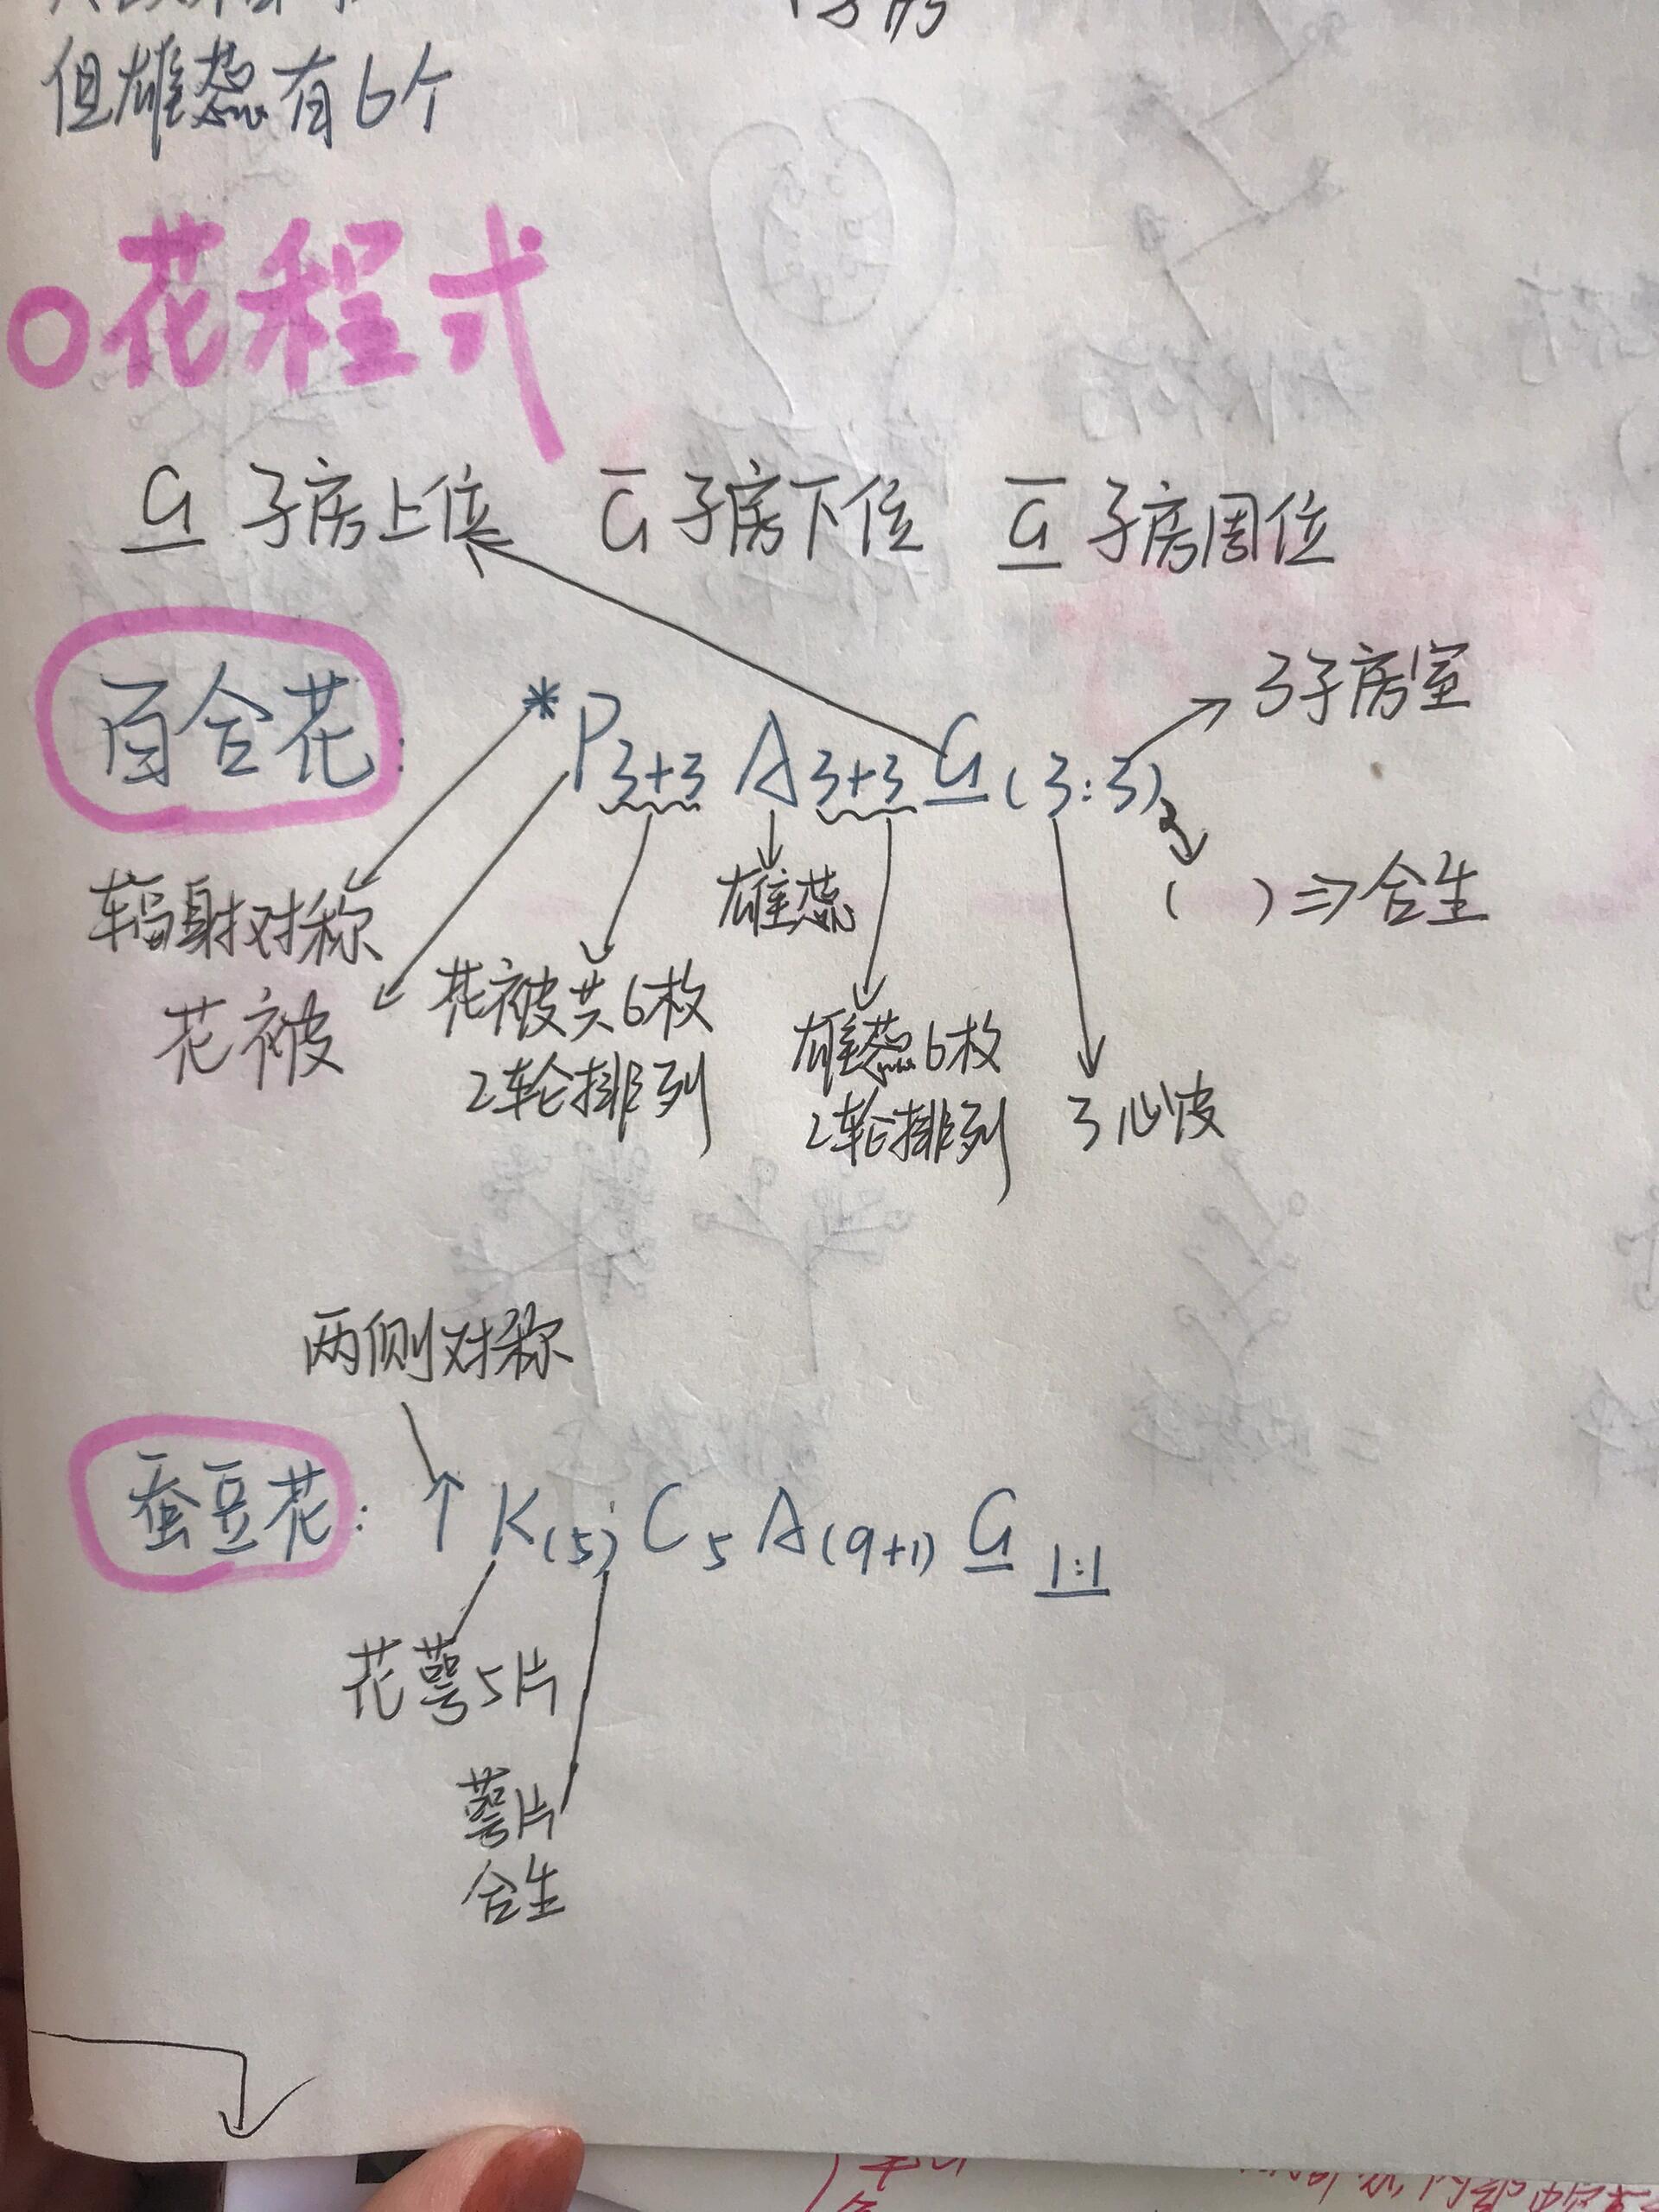 但雄蕊有6个
花程式
G̲ 子房上位 G̅ 子房下位 G̲̅ 子房周位
百合花: * P3+3 A3+3 G̲(3:3)
3子房室
( ) ⇒ 合生
辐射对称
花被
花被共6枚
2轮排列
雄蕊
雄蕊6枚
2轮排列
3心皮
两侧对称
蚕豆花: ↑ K(5) C5 A(9+1) G̲ 1:1
花萼5片
萼片
合生